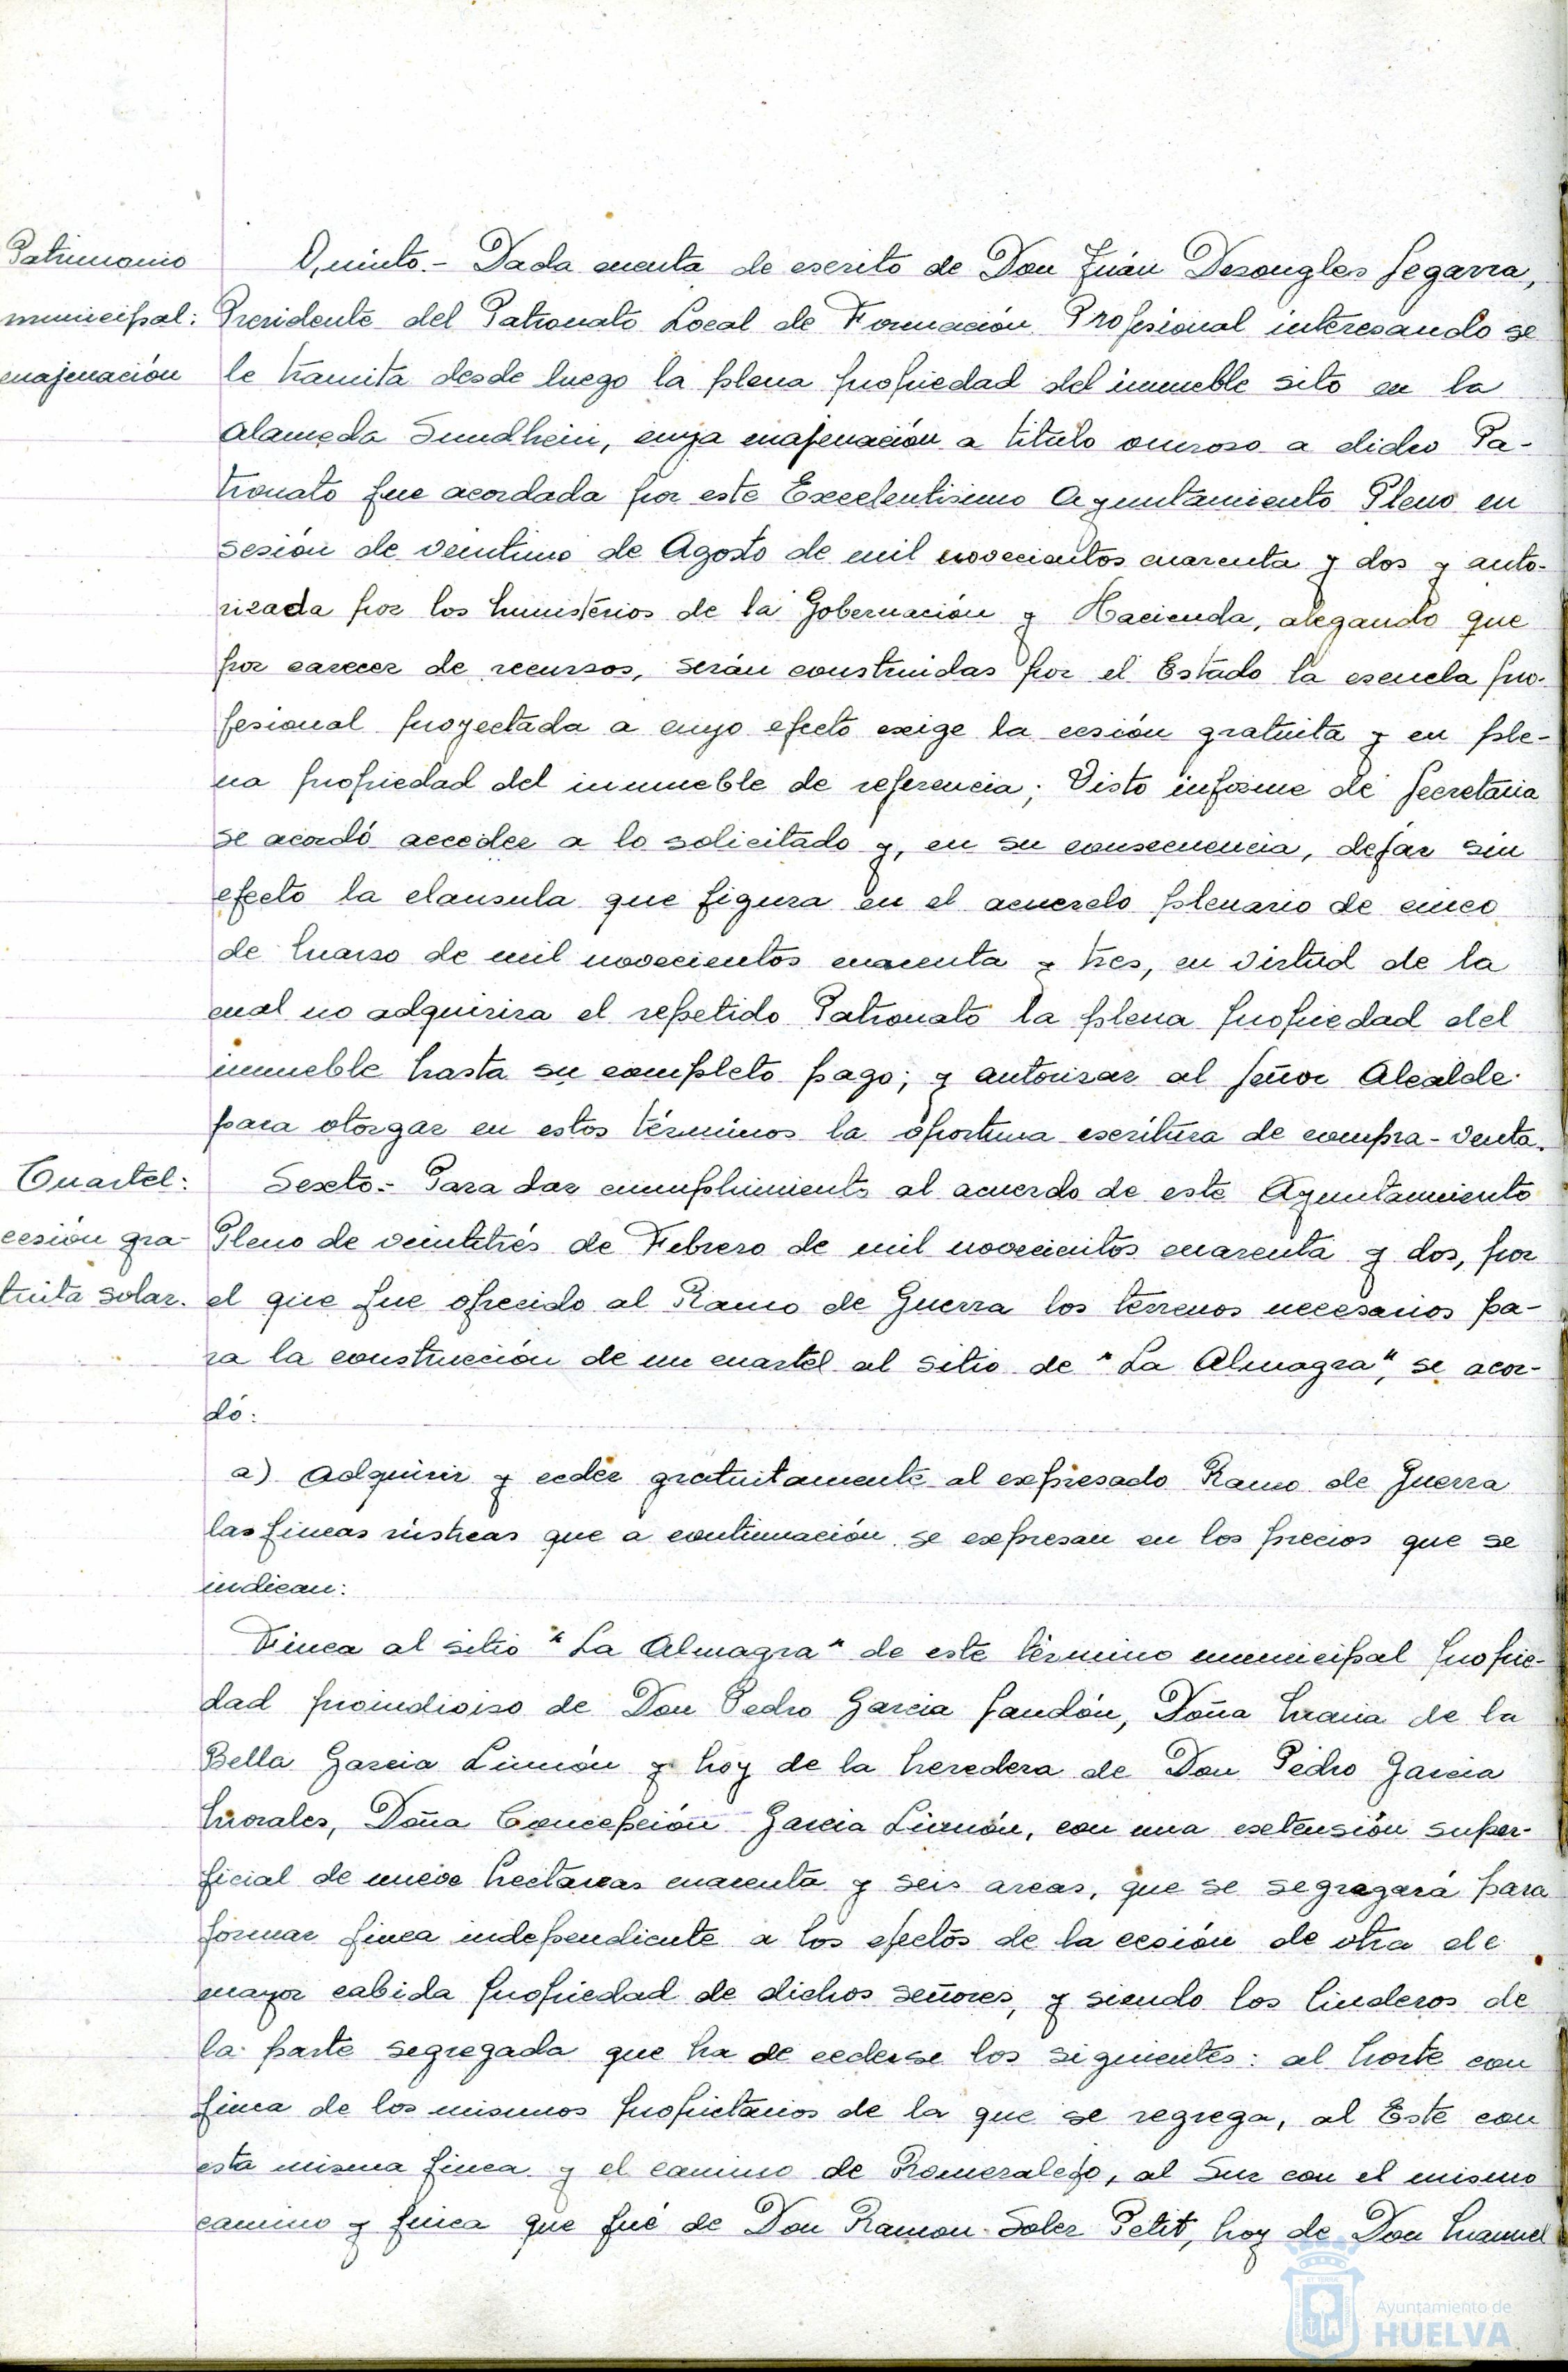 Patrimonio
municipal:
enajenación
Quinto.- Dada cuenta de escrito de Don Juán Desongles Segarra,
Presidente del Patronato Local de Formación Profesional interesando se
le tramita desde luego la plena propiedad del inmueble sito en la
Alameda Sundhein, cuya enajenación a titulo oneroso a dicho Pa-
tronato fue acordada por este Excelentisimo Ayuntamiento Pleno en
sesión de veintiuno de Agosto de mil novecientos cuarenta y dos y auto-
rizada por los Ministérios de la Gobernación y Hacienda, alegando que
por carecer de recursos, serán construidas por el Estado la escuela pro-
fesional proyectada a cuyo efecto exige la cesión gratuita y en ple-
na propiedad del inmueble de referencia; Visto informe de Secretaria
se acordó acceder a lo solicitado y, en su consecuencia, dejar sin
efecto la clausula que figura en el acuerdo plenario de cinco
de Marzo de mil novecientos cuarenta y tres, en virtud de la
cual no adquirira el repetido Patronato la plena propiedad del
inmueble hasta su completo pago; y autorizar al Señor Alcalde
para otorgar en estos términos la oportuna escritura de compra-venta.
Cuartel:
cesión gra-
tuita solar.
Sexto.- Para dar cumplimiento al acuerdo de este Ayuntamiento
Pleno de veintitrés de Febrero de mil novecientos cuarenta y dos, por
el que fue ofrecido al Ramo de Guerra los terrenos necesarios pa-
ra la construcción de un cuartel al sitio de "La Almagra", se acor-
dó:
a) Adquirir y ceder gratuitamente al expresado Ramo de Guerra
las fincas rústicas que a continuación se expresan en los precios que se
indican:
Finca al sitio "La Almagra" de este término municipal propie-
dad proindiviso de Don Pedro Garcia Jandón, Doña Maria de la
Bella Garcia Limón y hoy de la heredera de Don Pedro Garcia
Morales, Doña Concepción Garcia Limón, con una extensión super-
ficial de nueve hectareas cuarenta y seis areas, que se segregará para
formar finca independiente a los efectos de la cesión de otra de
mayor cabida propiedad de dichos señores, y siendo los linderos de
la parte segregada que ha de cederse los siguientes: al Norte con
finca de los mismos propietarios de la que se regrega, al Este con
esta misma finca y el camino de Romeralejo, al Sur con el mismo
camino y finca que fué de Don Ramon Soler Petit, hoy de Don Manuel
Ayuntamiento de
HUELVA